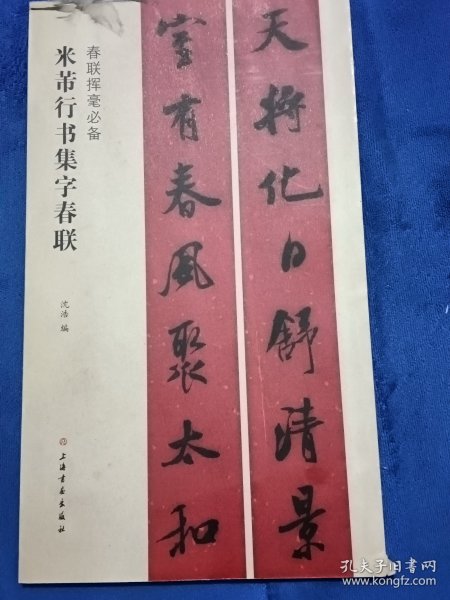 天将化日舒清景
室有春风聚太和
春联挥毫必备
米芾行书集字春联
沈浩 编
上海书画出版社
孔夫子旧书网
www.kongfz.com